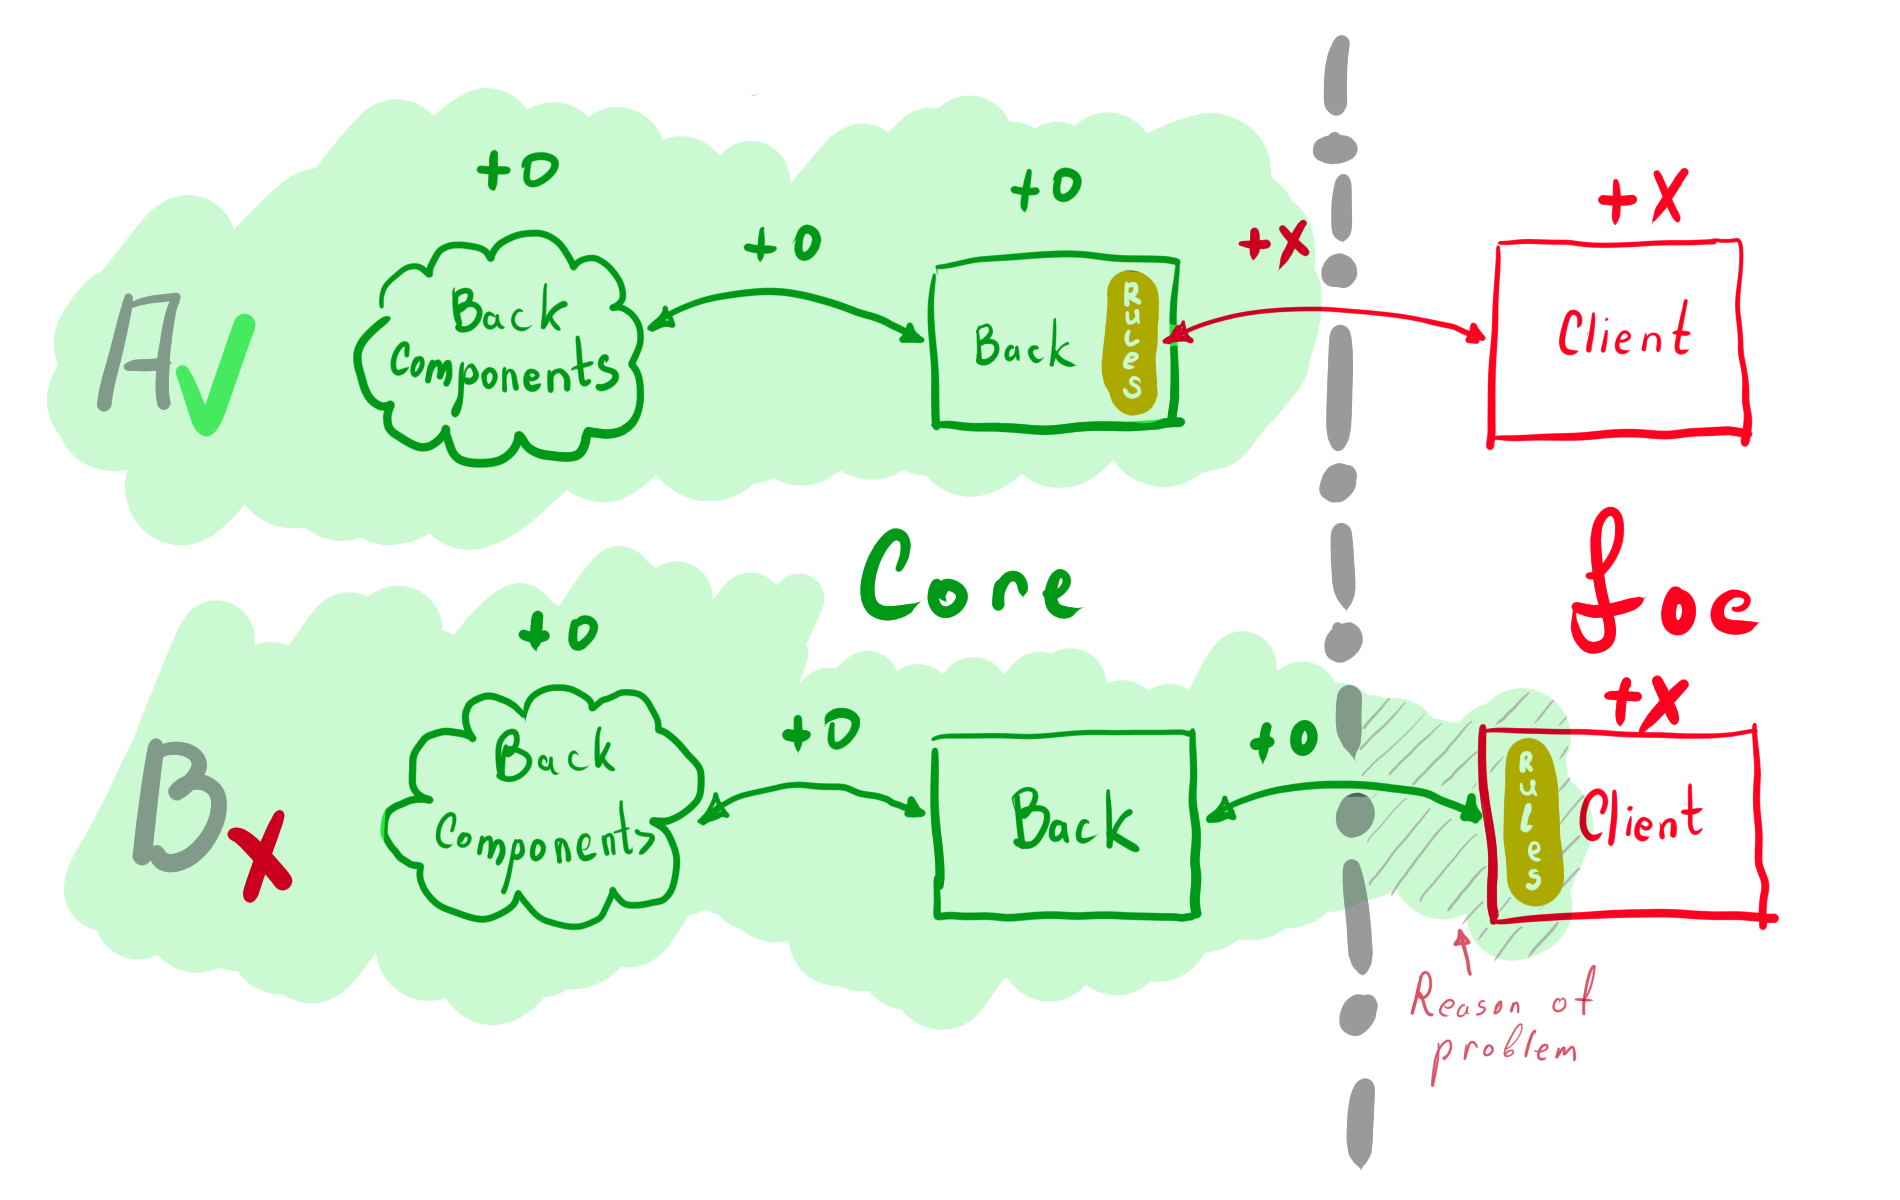 +0
+0
+0
+X
+X
A
Back
Components
Back
Rules
Client
Core
foe
+0
+0
+0
+X
B
X
Back
Components
Back
Rules
Client
Reason of
problem